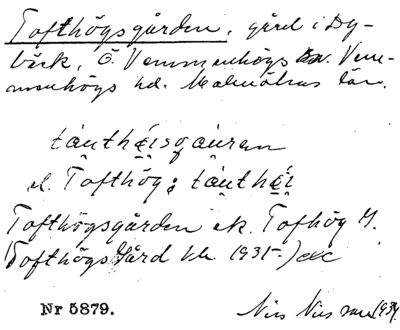 Tofthögsgården, gård i Dy-
bäck, Ö. Vemmenhögs sn. Vem-
menhögs hd. Malmöhus län.
táuthǽisgáuren
el. Tofthög: táuthǽi
Tofthögsgården ek. Tofhög M.
(Tofthögs Gård kk 1931.)
Nr 5879.
Nils Nilsson 1934.